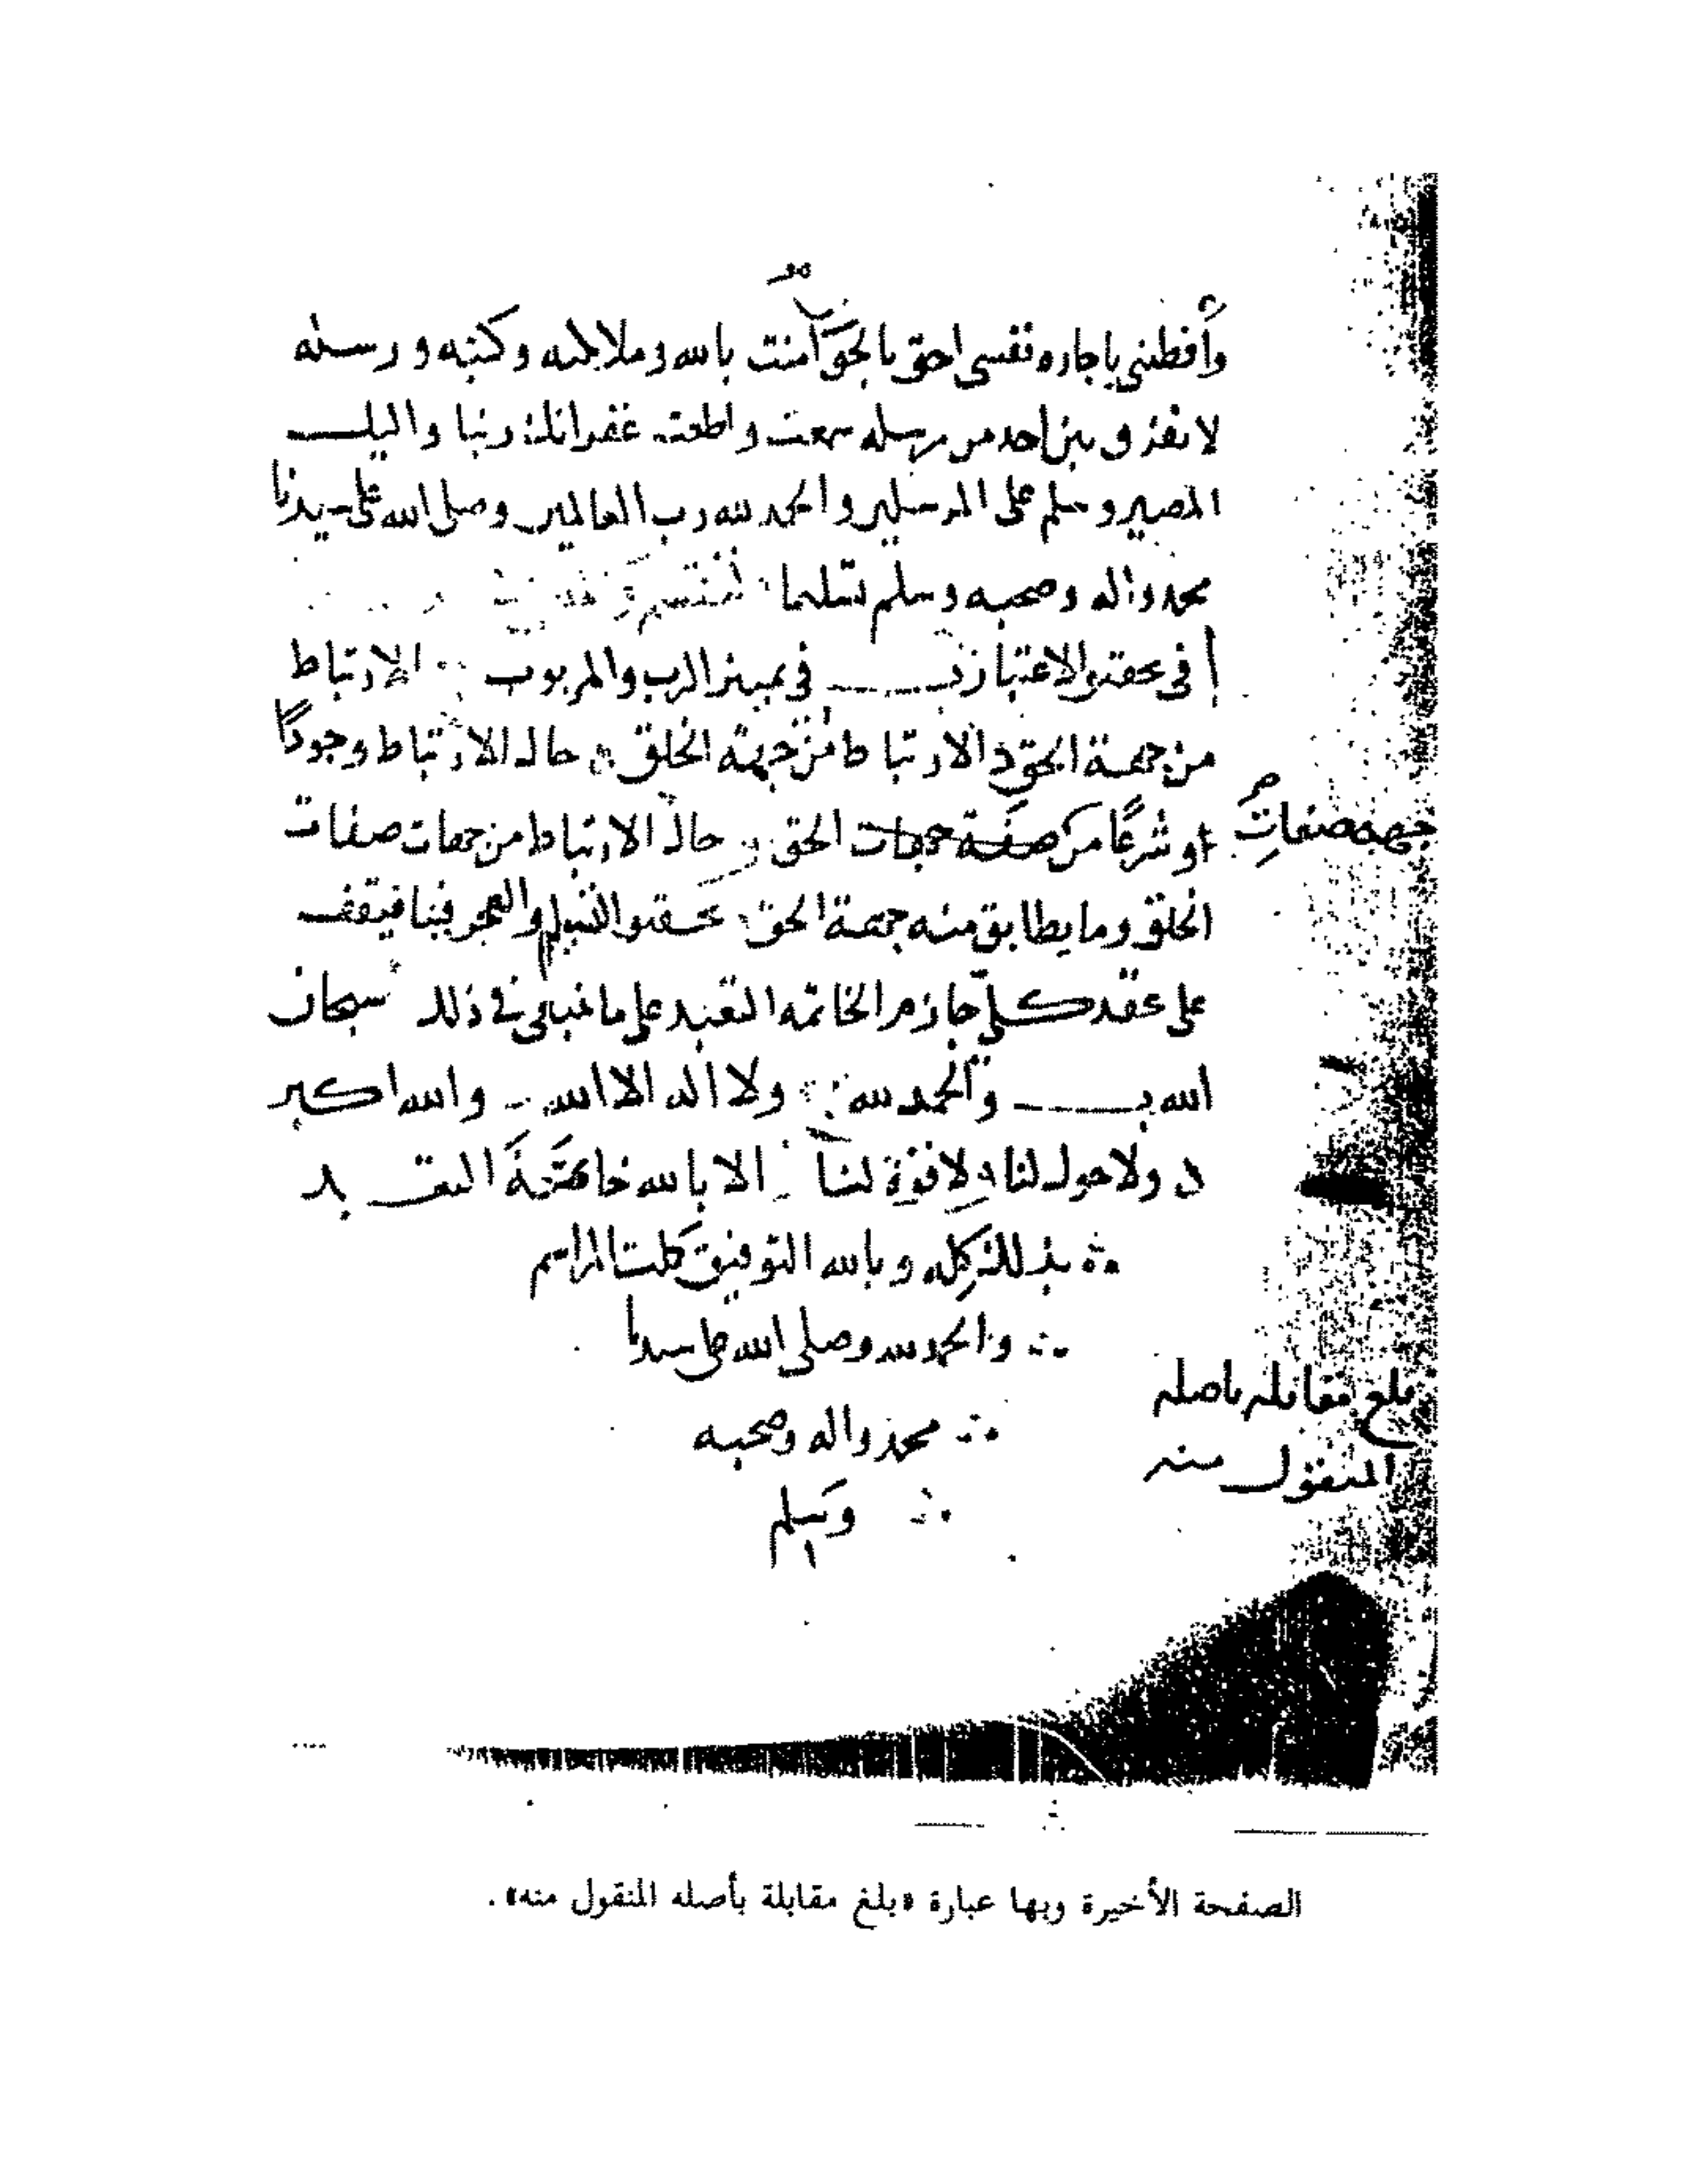 باجاره نفسى احق بالحق آمنت بالله وملائكته وكتبه ورسله
لا نفرق بين احد من رسله سمعت واطعت غفرانك ربنا واليك
المصير وسلم على المرسلين والحمد لله رب العالمين وصلى الله على سيدنا
محمد واله وصحبه وسلم تسليما
فى تحقيق الاعتبار فى تمييز الرب والمربوب الارتباط
من جهة الحق الارتباط من جهة الخلق حالة الارتباط وجودًا
او شرعًا من الحق حالة الارتباط من جهات صفات
جهة صفات
الخلق وما يطابق منه جهة الحق فيقف
على عقد كل جازم الخاتمه على ما فى ذلك سبحان
الله والحمد لله ولا اله الا الله والله اكبر
ولا حول لنا ولا قوة لنا الا بالله خاتمة
بذلك كله وبالله التوفيق كملت المراسم
والحمد لله وصلى الله على سيدنا
محمد واله وصحبه
وسلم
بلغ مقابلة باصله
المنقول منه
الصفحة الأخيرة وبها عبارة «بلغ مقابلة بأصله المنقول منه».